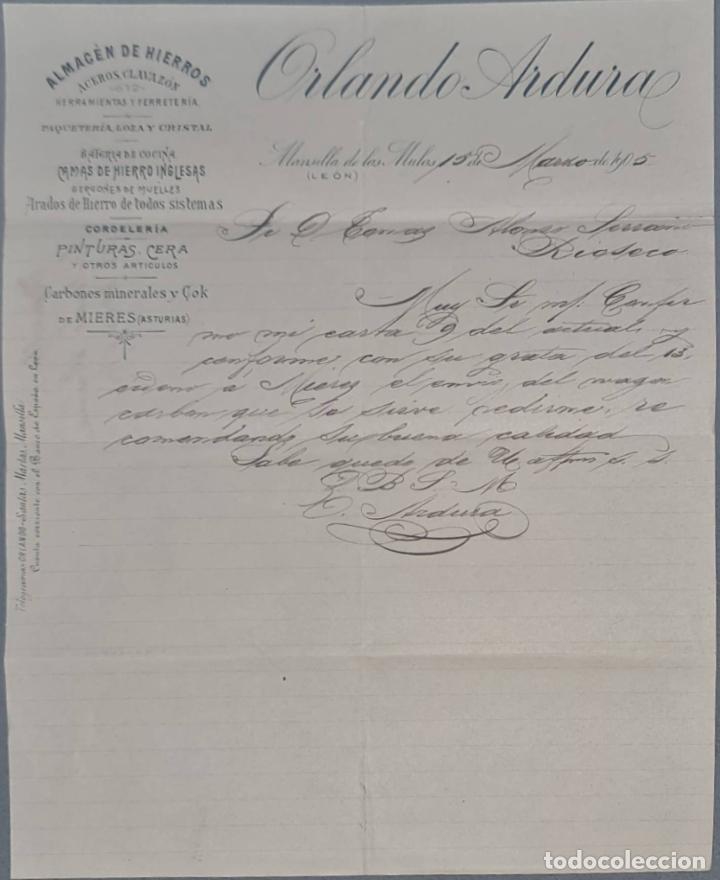 ALMACÈN DE HIERROS
ACEROS, CLAVAZÓN
HERRAMIENTAS Y FERRETERÍA
PAQUETERÍA, LOZA Y CRISTAL
BATERIA DE COCINA
CAMAS DE HIERRO INGLESAS
GERGONES DE MUELLES
Arados de Hierro de todos sistemas
CORDELERÍA
PINTURAS, CERA
Y OTROS ARTICULOS
Carbones minerales y Cok
DE MIERES (ASTURIAS)
Telegramas: ORLANDO-Santas Martas, Mansilla
Cuenta corriente con el Banco de España en León
Orlando Ardura
Mansilla de las Mulas 15 de Marzo de 1905
(LEÓN)
Sr D Tomas Alonso
Rioseco
Muy Sr mf. Confir
mo mi carta 9 del actual y
conforme con su grata del 13,
ordeno a Mieres el envio del wagon
carbon que se sirve pedirme, re
comendando su buena calidad
Sabe quedo de V. affmo s. s.
Q B S M
O. Ardura
todocoleccion.net